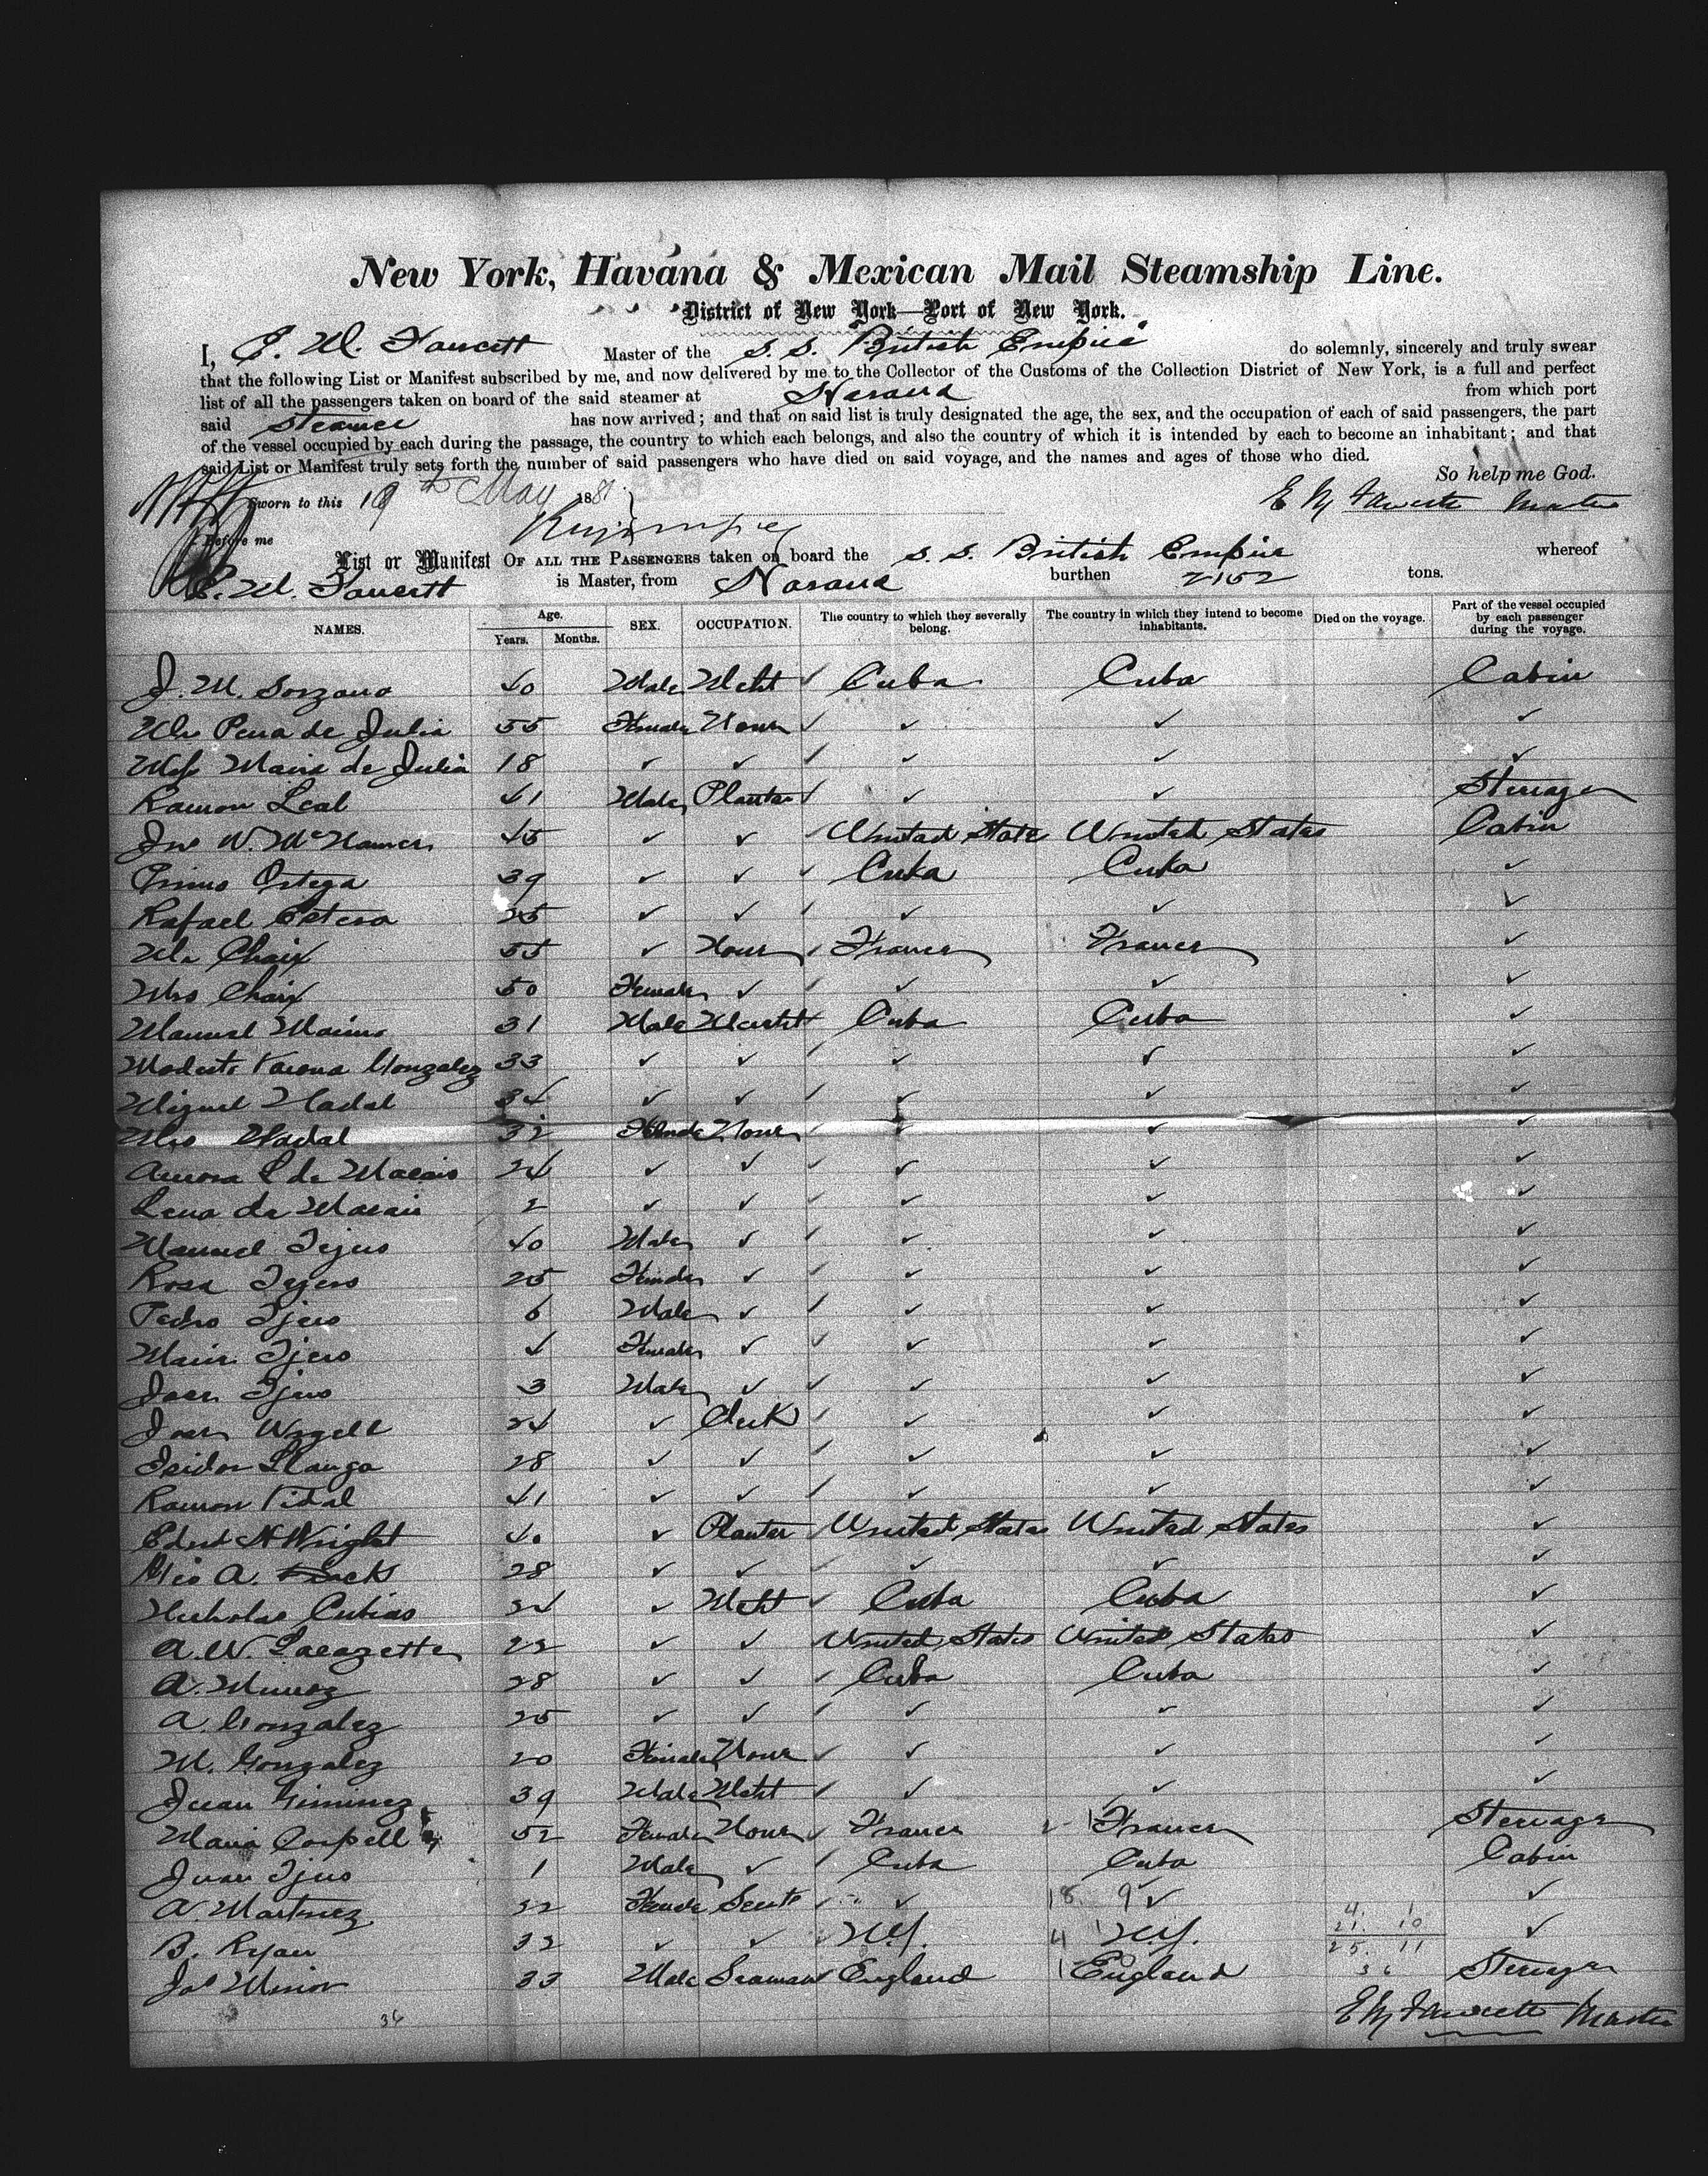 New York, Havana & Mexican Mail Steamship Line.
District of New York—Port of New York.
I, E. W. Fawcett Master of the S. S. British Empire do solemnly, sincerely and truly swear
that the following List or Manifest subscribed by me, and now delivered by me to the Collector of the Customs of the Collection District of New York, is a full and perfect
list of all the passengers taken on board of the said steamer at Havana from which port
said Steamer has now arrived; and that on said list is truly designated the age, the sex, and the occupation of each of said passengers, the part
of the vessel occupied by each during the passage, the country to which each belongs, and also the country of which it is intended by each to become an inhabitant; and that
said List or Manifest truly sets forth the number of said passengers who have died on said voyage, and the names and ages of those who died.
So help me God.
Sworn to this 19th May 1881
Before me
List or Manifest OF ALL THE PASSENGERS taken on board the S. S. British Empire whereof
E. W. Fawcett is Master, from Havana burthen 2152 tons.
NAMES. Age. Years. Months. SEX. OCCUPATION. The country to which they severally belong. The country in which they intend to become inhabitants. Died on the voyage. Part of the vessel occupied by each passenger during the voyage.
J. M. Sorzano 40 Male Mcht ✓ Cuba Cuba Cabin
Pena de Julia 55 Female None ✓ ✓ ✓ ✓
Maria de Julia 18 ✓ ✓ ✓ ✓ ✓ ✓
Ramon Leal 41 Male Planter ✓ ✓ ✓ Steerage
Jno W. 45 ✓ ✓ ✓ United State United States Cabin
Primo Ortega 39 ✓ ✓ ✓ Cuba Cuba ✓
Rafael 25 ✓ ✓ ✓ ✓ ✓ ✓
Mr Chaix 55 ✓ None ✓ France France ✓
Mrs Chaix 50 Female ✓ ✓ ✓ ✓ ✓
Manuel 31 Male Mercht ✓ Cuba Cuba ✓
Modesto Gonzalez 33 ✓ ✓ ✓ ✓ ✓ ✓
Miguel Nadal 34 ✓ ✓ ✓ ✓ ✓ ✓
Mrs Nadal 32 Female None ✓ ✓ ✓ ✓
Aurora L de 24 ✓ ✓ ✓ ✓ ✓ ✓
Lena de 2 ✓ ✓ ✓ ✓ ✓ ✓
Manuel Tejero 40 Male ✓ ✓ ✓ ✓ ✓
Rosa Tejero 25 Female ✓ ✓ ✓ ✓ ✓
Pedro Tjero 6 Male ✓ ✓ ✓ ✓ ✓
Maria Tjero 4 Female ✓ ✓ ✓ ✓ ✓
Jose Tjero 3 Male ✓ ✓ ✓ ✓ ✓
Jose 24 ✓ Clerk ✓ ✓ ✓ ✓
Isidor Llango 28 ✓ ✓ ✓ ✓ ✓ ✓
Ramon Vidal 41 ✓ ✓ ✓ ✓ ✓ ✓
Edwd N Wright 40 ✓ Planter ✓ United States United States ✓
Geo A. 28 ✓ ✓ ✓ ✓ ✓ ✓
Nicholas Cubias 34 ✓ Mcht ✓ Cuba Cuba ✓
A. W. Lacazette 22 ✓ ✓ ✓ United States United States ✓
A. Munoz 28 ✓ ✓ ✓ Cuba Cuba ✓
A. Gonzalez 25 ✓ ✓ ✓ ✓ ✓ ✓
M. Gonzalez 20 Female None ✓ ✓ ✓ ✓
Juan Giminez 39 Male Mcht ✓ ✓ ✓ ✓
Maria 52 Female None ✓ France France Steerage
Juan Tjero 1 Male ✓ ✓ Cuba Cuba Cabin
A. Martinez 32 Female Servt ✓ ✓ 18 9 ✓ ✓
B. Ryan 32 ✓ ✓ N.Y. 4 1 N.Y. ✓
Jas Minor 33 Male Seaman ✓ England 1 England Steerage
4. 1
21. 10
25. 11
36
E W Fawcett Master
36